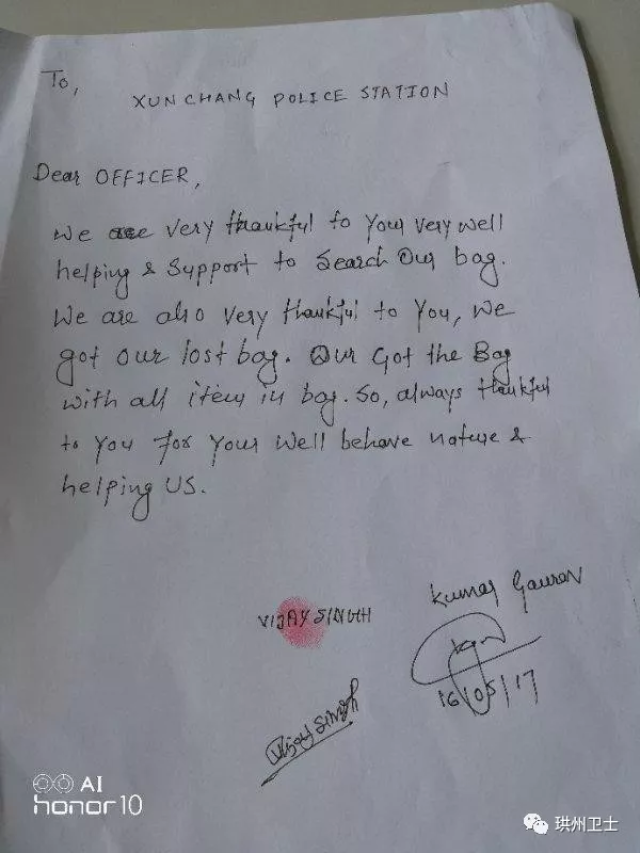 To,
XUNCHANG POLICE STATION
Dear OFFICER,
We are very thankful to your very well
helping & support to search our bag.
We are also very thankful to you, we
got our lost bag. Our got the Bag
with all item in bag. So, always thankful
to you for your well behave nature &
helping US.
Kumar Gaurav
VIJAY SINGH
16/05/17
Vijay Singh
AI
honor 10
珙州卫士